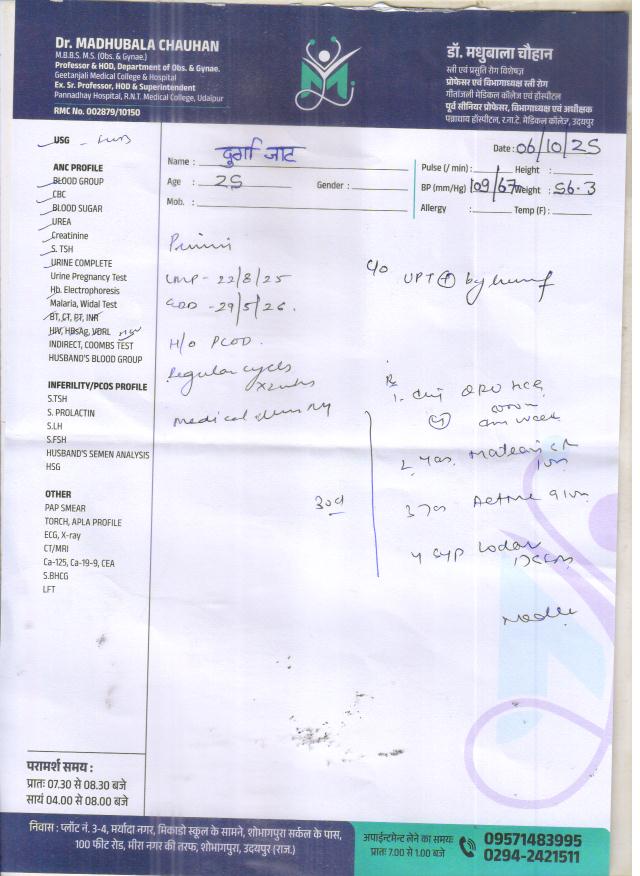 Dr. MADHUBALA CHAUHAN
M.B.B.S. M.S. (Obs. & Gynae.)
Professor & HOD, Department of Obs. & Gynae.
Geetanjali Medical College & Hospital
Ex. Sr. Professor, HOD & Superintendent
Pannadhay Hospital, R.N.T. Medical College, Udaipur
RMC No. 002879/10150
डॉ. मधुबाला चौहान
स्त्री एवं प्रसुति रोग विशेषज्ञ
प्रोफेसर एवं विभागाध्यक्ष स्त्री रोग
गीतांजली मेडिकल कॉलेज एवं हॉस्पीटल
पूर्व सीनियर प्रोफेसर, विभागाध्यक्ष एवं अधीक्षक
पन्नाधाय हॉस्पिटल, र.ना.टे. मेडिकल कॉलेज, उदयपुर
Date: 06/10/25
Name : दुर्गा जाट
Age : 25 Gender :
Mob. :
Pulse (/ min) : Height :
BP (mm/Hg) 109/67 Weight : 56.3
Allergy : Temp (F) :
USG
ANC PROFILE
BLOOD GROUP
CBC
BLOOD SUGAR
UREA
Creatinine
S. TSH
URINE COMPLETE
Urine Pregnancy Test
Hb. Electrophoresis
Malaria, Widal Test
BT, CT, PT, INR
HIV, HBsAg, VDRL
INDIRECT, COOMBS TEST
HUSBAND'S BLOOD GROUP
INFERILITY/PCOS PROFILE
S.TSH
S. PROLACTIN
S.LH
S.FSH
HUSBAND'S SEMEN ANALYSIS
HSG
OTHER
PAP SMEAR
TORCH, APLA PROFILE
ECG, X-ray
CT/MRI
Ca-125, Ca-19-9, CEA
S.BHCG
LFT
Primi
LMP - 22/8/25
EDD - 29/5/26.
H/O PCOD.
Regular cycles
Medical
30d
C/o UPT (+) by
Rx
1.
2
3
4 Syp
परामर्श समय :
प्रातः 07.30 से 08.30 बजे
सायं 04.00 से 08.00 बजे
निवास : प्लॉट नं. 3-4, मर्यादा नगर, मिकाडो स्कूल के सामने, शोभागपुरा सर्कल के पास,
100 फीट रोड, मीरा नगर की तरफ, शोभागपुरा, उदयपुर (राज.)
अपाईन्टमेन्ट लेने का समयः
प्रातः 7.00 से 1.00 बजे
09571483995
0294-2421511